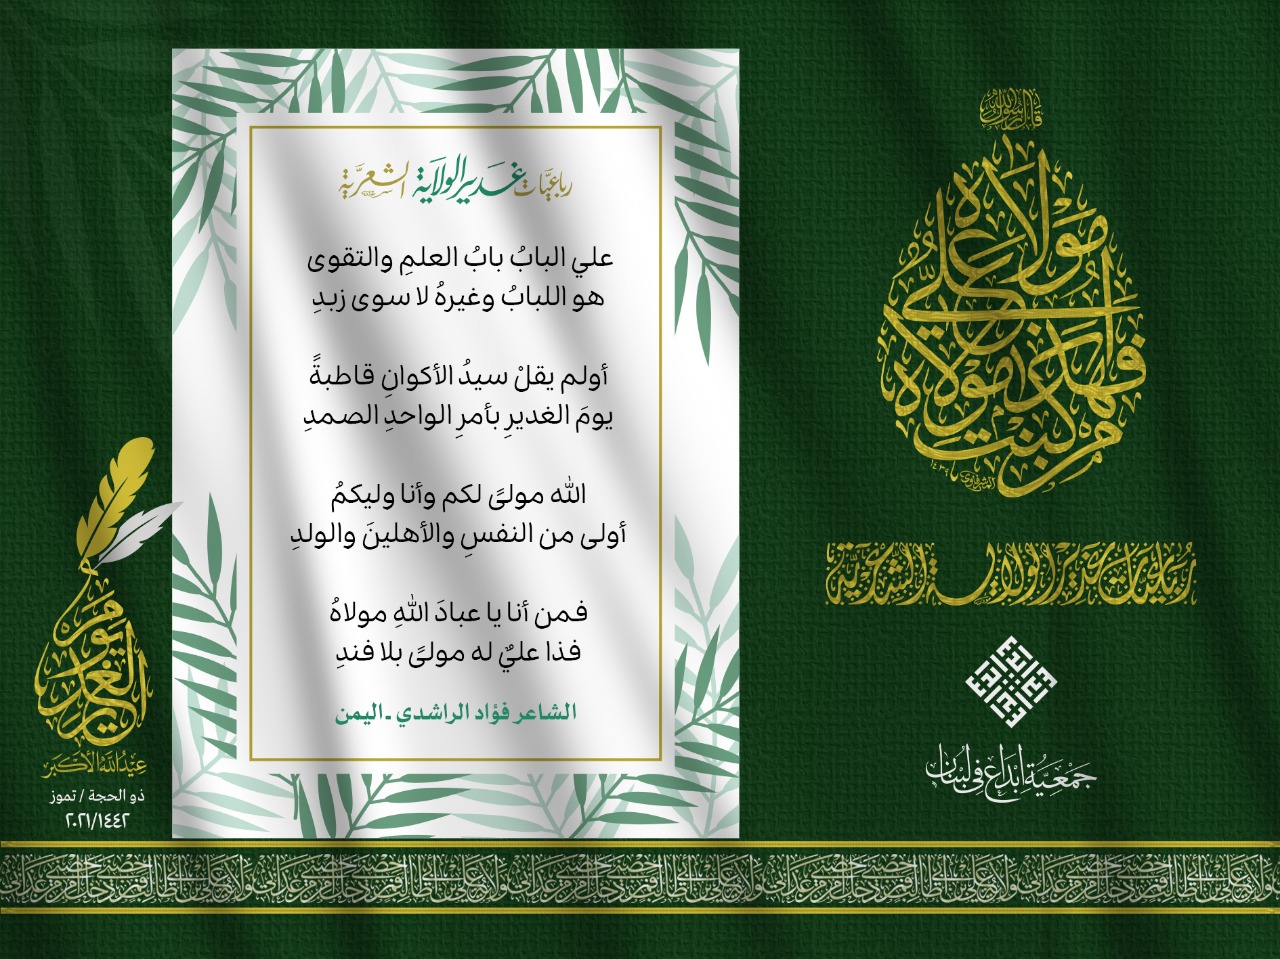 قال رسول الله
من كنت مولاه فهذا علي مولاه
رباعيات غدير الولاية الشعرية
جمعية إبداع في لبنان
رباعيّات غدير الولاية الشعريّة
علي البابُ بابُ العلمِ والتقوى
هو اللبابُ وغيرهُ لا سوى زبدِ
أولم يقلْ سيدُ الأكوانِ قاطبةً
يومَ الغديرِ بأمرِ الواحدِ الصمدِ
الله مولىً لكم وأنا وليكمُ
أولى من النفسِ والأهلينَ والولدِ
فمن أنا يا عبادَ اللهِ مولاهُ
فذا عليٌ له مولىً بلا فندِ
الشاعر فؤاد الراشدي ـ اليمن
يوم الغدير
عيد الله الأكبر
ذو الحجة / تموز
٢٠٢١/١٤٤٢
ولاية علي بن أبي طالب حصني فمن دخل حصني أمن من عذابي